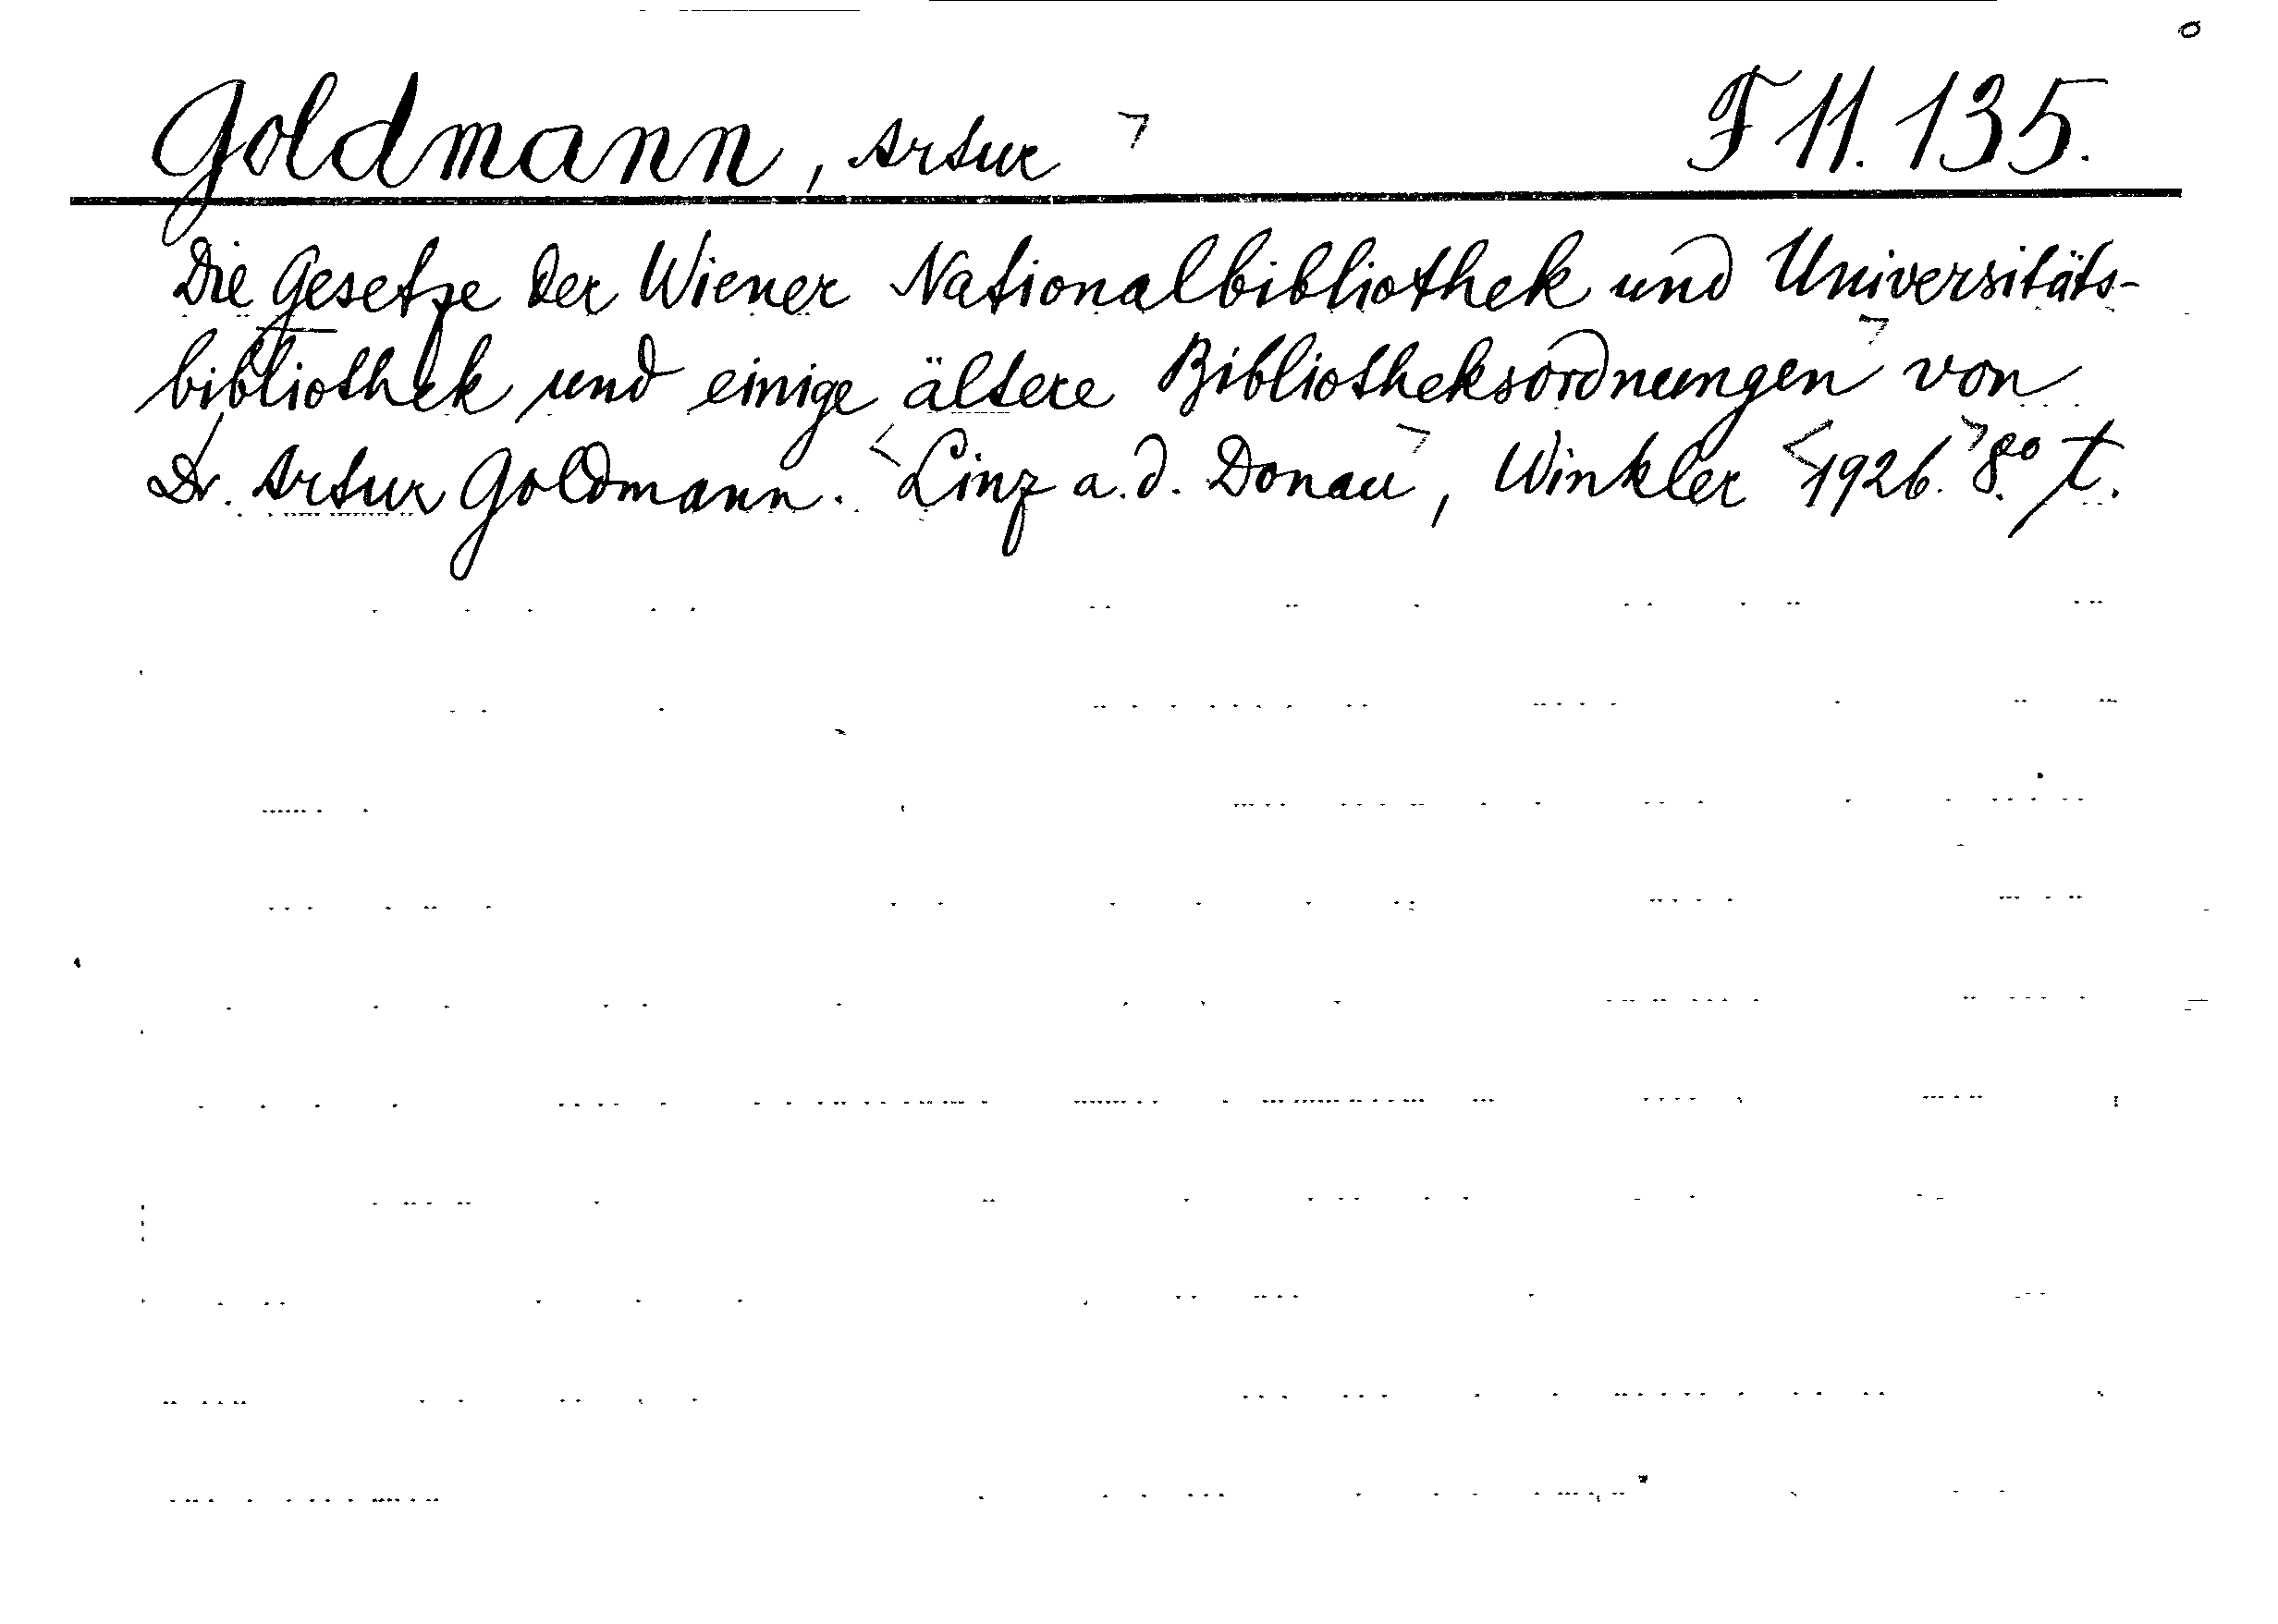 Goldmann, Artur ⌝ F 11.135.
Die Gesetze der Wiener Nationalbibliothek und Universitäts-
bibliothek und einige ältere Bibliotheksordnungen ⌝ von
Dr. Artur Goldmann. <Linz a.d. Donau⌝, Winkler <1926.⌝ 8.° t.